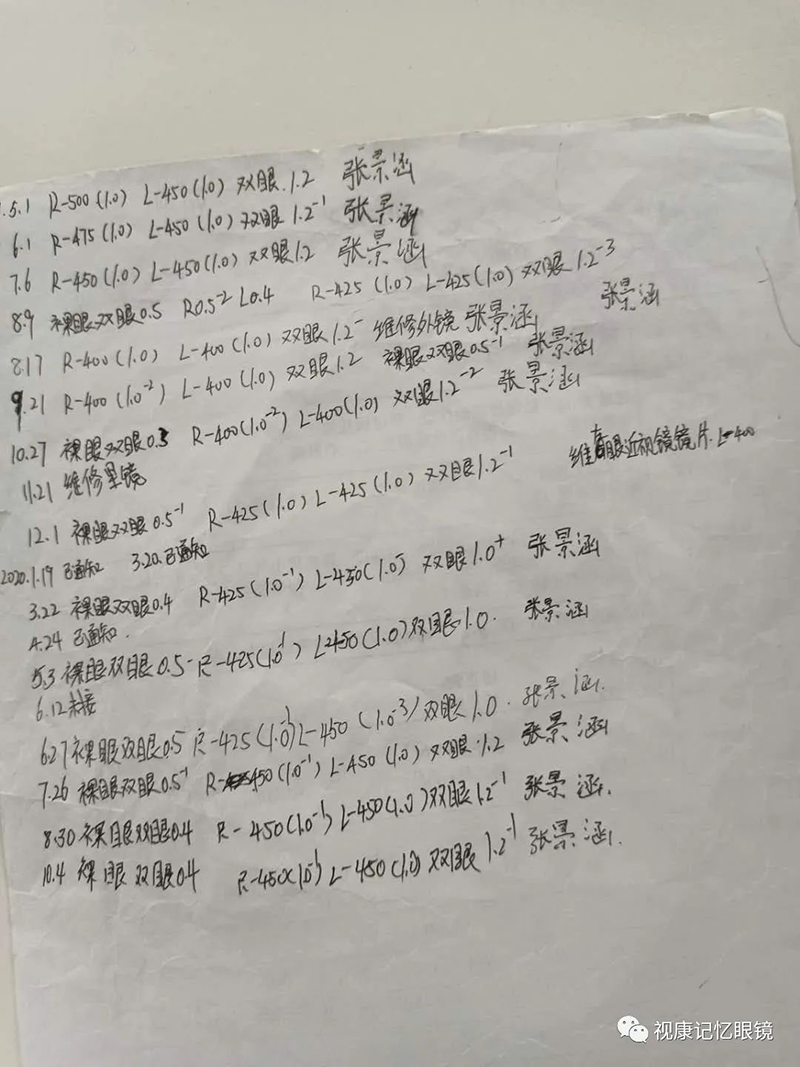 .5.1 R-500(1.0) L-450(1.0) 双眼.1.2 张景涵
6.1 R-475(1.0) L-450(1.0) 双眼1.2⁻¹ 张景涵
7.6 R-450(1.0) L-450(1.0) 双眼1.2 张景涵
8.9 裸眼双眼0.5 R0.5⁻² L0.4 R-425(1.0) L-425(1.0) 双眼1.2⁻³ 张景涵
8.17 R-400(1.0) L-400(1.0) 双眼1.2⁻ 维修外镜 张景涵
9.21 R-400(1.0⁻²) L-400(1.0) 双眼1.2 裸眼双眼0.5⁻¹ 张景涵
10.27 裸眼双眼0.3 R-400(1.0⁻²) L-400(1.0) 双眼1.2⁻² 张景涵
11.21 维修里镜
维 眼近视镜镜片.L-400
12.1 裸眼双眼0.5⁻¹ R-425(1.0) L-425(1.0) 双眼1.2⁻¹
2020.1.19 已通知 3.20.已通知
3.22 裸眼双眼0.4 R-425(1.0⁻¹) L-450(1.0⁻) 双眼1.0⁺ 张景涵
4.24 已通知.
5.3 裸眼双眼0.5⁻ R-425(1.0⁻¹) L-450(1.0)双眼1.0. 张景涵
6.12未接
6.27裸眼双眼0.5 R-425(1.0⁻¹)L-450(1.0⁻³)双眼1.0. 张景涵.
7.26 裸眼双眼0.5⁻¹ R-450(1.0⁻¹) L-450(1.0) 双眼1.2 张景涵
8.30 裸眼双眼0.4 R-450(1.0⁻¹) L-450(1.0)双眼1.2⁻¹ 张景涵.
10.4 裸眼双眼0.4 R-450(1.0⁻¹) L-450(1.0)双眼1.2⁻¹ 张景涵.
视康记忆眼镜